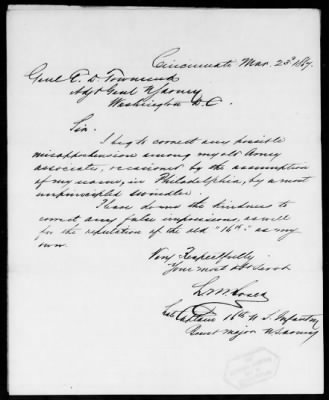 Cincinnati Mar. 23d 1869.
Genl E. D. Townsend
Adjt Genl U S Army
Washington D.C.
Sir.
I beg to correct any possible
misapprehension among my old Army
associates, occasioned by the assumption
of my name, in Philadelphia, by a most
unprincipled swindler.
Please do me the kindness to
correct any false impressions, as well
for the reputation of the old "16th" as my
own.
Very Respectfully
Your most obt Servt
Late Captain 16th U. S. Infantry
Brevt Major U S Army